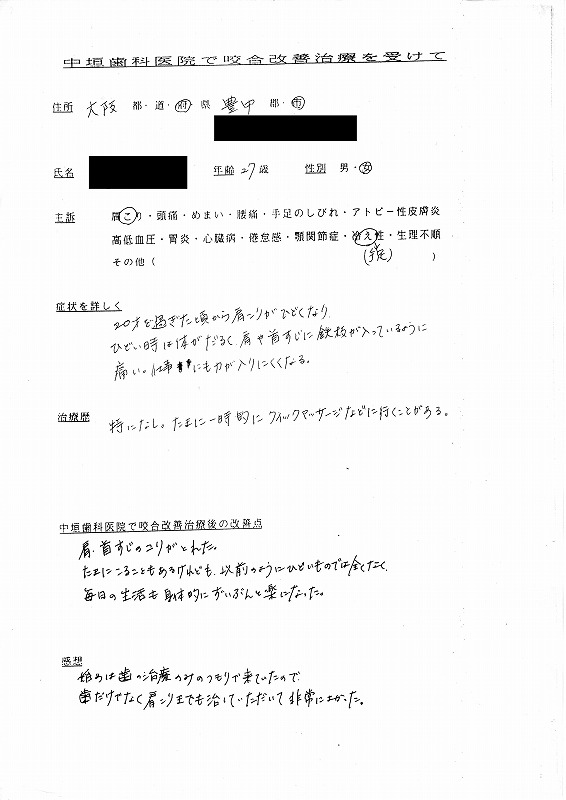 中垣歯科医院で咬合改善治療を受けて
住所 大阪 都・道・府・県 豊中 郡・市
氏名 年齢 27歳 性別 男・女
主訴 肩こり・頭痛・めまい・腰痛・手足のしびれ・アトピー性皮膚炎
高低血圧・胃炎・心臓病・倦怠感・顎関節症・冷え性・生理不順
その他( )
症状を詳しく
20才を過ぎた頃から肩こりがひどくなり、
ひどい時は体がだるく、肩や首すじに鉄板が入っているように
痛い。仕事にも力が入りにくくなる。
治療歴 特になし。たまに一時的にクイックマッサージなどに行くことがある。
中垣歯科医院で咬合改善治療後の改善点
肩、首すじのコリがとれた。
たまにこることもあるけれども、以前のようにひどいものでは全くなく、
毎日の生活も身体的にずいぶんと楽になった。
感想
始めは歯の治療のみのつもりで来ていたので
歯だけでなく肩こりまでも治していただいて非常によかった。